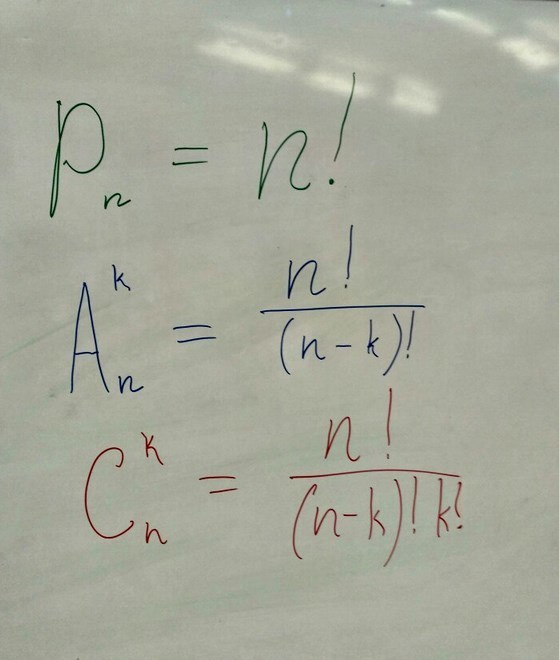 P_n = n!
A_n^k = n! / (n-k)!
C_n^k = n! / (n-k)! k!